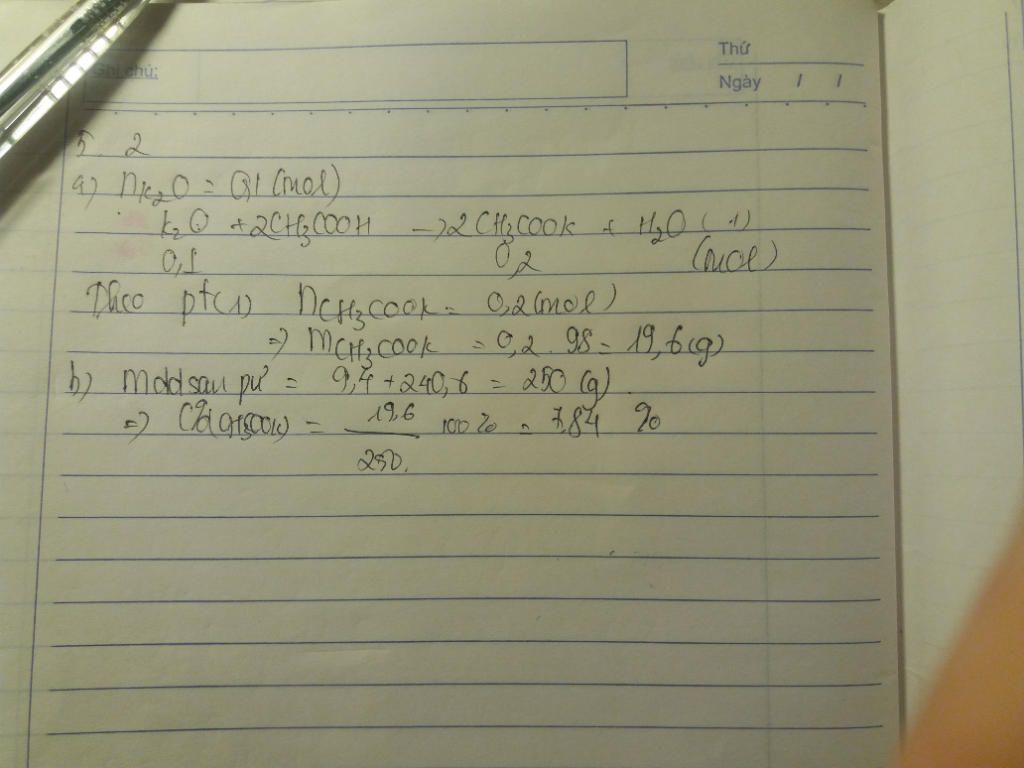 Thứ
Ghi chú:
Ngày / /
5. 2
a) nK₂O = 0,1 (mol)
K₂O + 2CH₃COOH → 2CH₃COOK + H₂O (1)
0,1 0,2 (mol)
Theo pt(1) nCH₃COOK = 0,2 (mol)
=> mCH₃COOK = 0,2 . 98 = 19,6 (g)
b) mdd sau pư = 9,4 + 240,6 = 250 (g)
=> C%(CH₃COOK) = 19,6 100% = 7,84 %
250.